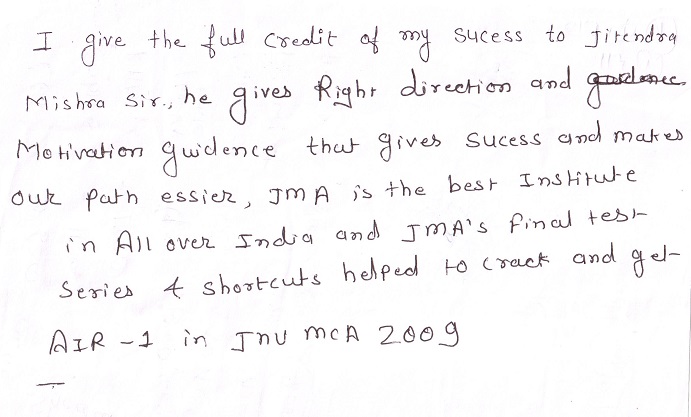 I give the full credit of my sucess to Jitendra
Mishra Sir., he gives Right direction and
Motivation guidence that gives sucess and makes
our path essier, JMA is the best Institute
in All over India and JMA's final test
Series & shortcuts helped to crack and get
AIR -1 in JNU MCA 2009